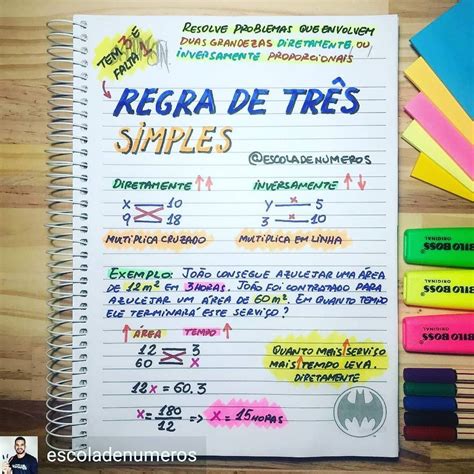 TEM 3 E
FALTA 1
RESOLVE PROBLEMAS QUE ENVOLVEM
DUAS GRANDEZAS DIRETAMENTE OU
INVERSAMENTE PROPORCIONAIS
REGRA DE TRÊS
SIMPLES
@ESCOLADENUMEROS
DIRETAMENTE ↑↑ INVERSAMENTE ↑↓
X 10 Y 5
9 18 3 10
MULTIPLICA CRUZADO MULTIPLICA EM LINHA
EXEMPLO: JOÃO CONSEGUE AZULEJAR UMA ÁREA
DE 12m² EM 3 HORAS. JOÃO FOI CONTRATADO PARA
AZULEJAR UM ÁREA DE 60m². EM QUANTO TEMPO
ELE TERMINARÁ ESTE SERVIÇO?
↑ ÁREA TEMPO ↑
12 3
60 X
12X = 60.3
X = 180/12 => X = 15 HORAS
QUANTO MAIS SERVISO
MAIS TEMPO LEVA.
DIRETAMENTE
BOSS
ORIGINAL
BOSS
ORIGINAL
BOSS
ORIGINAL
escoladenumeros